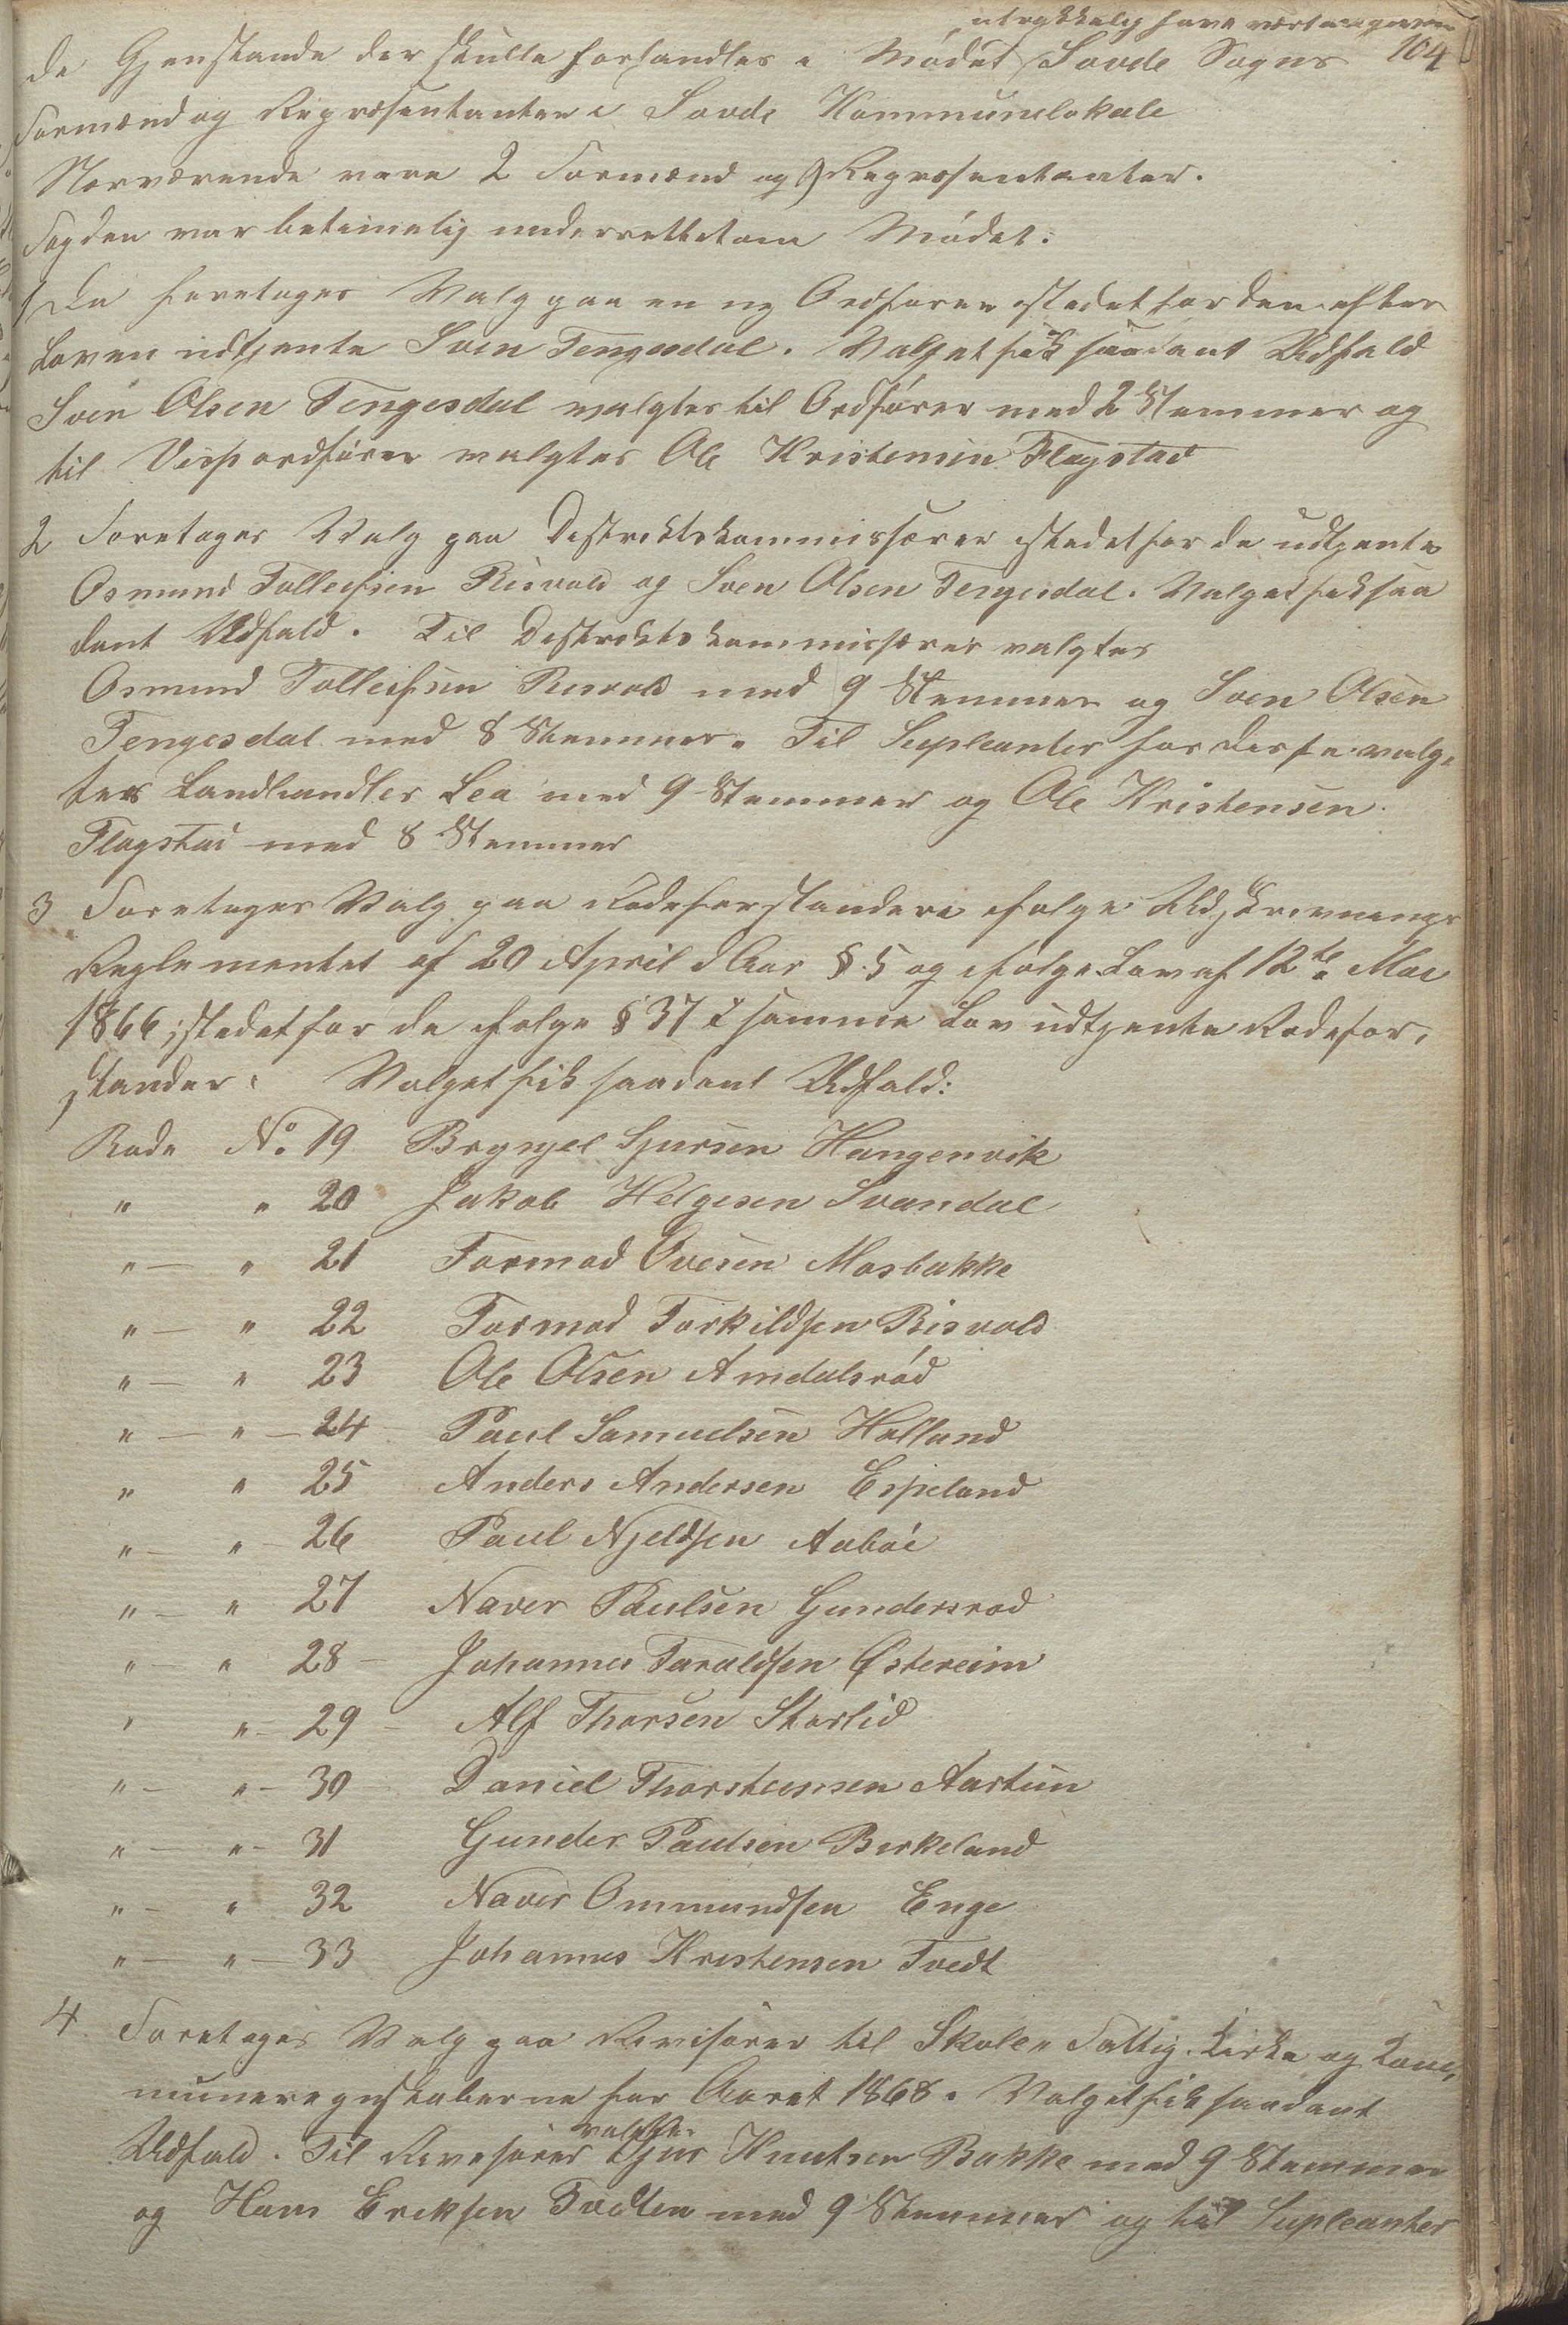 udtrykkelig have vært angiven
104
de Gjenstande der skulle forhandles i Mødet Sovde Sogns
Formænd og Repræsentanter i Sovde Kommunelokale
Nærværende vare 2 Formænd og 9 Repræsentanter.
Fogden var betimelig underrettet om Mødet.
1 Da foretoges Valg paa en ny Ordfører istedet for den efter
Loven udtjente Sven Tengesdal. Valget fik saadant Udfald
Sven Olsen Tengesdal valgtes til Ordfører med 2 Stemmer og
til Viseordfører valgtes Ole Kristensen Flagstad
2 Foretoges Valg paa Distriktskommissærer istedet for de udtjente
Osmund Tolleifsen Risvold og Sven Olsen Tengesdal. Valget fik saa
dant Udfald. Til Distriktskommissærer valgtes
Osmund Tolleifsen Risvold med 9 Stemmer og Sven Olsen
Tengesdal med 8 Stemmer. Til Supleanter for disse valg-
tes Landhandler Lea med 9 Stemmer og Ole Kristensen
Flagstad med 8 Stemmer
3 Foretoges Valg paa Rodeforstandere ifølge Udskrivnings
Reglementet af 20 April d Aar § 5 og ifølge Lov af 12te Mai
1866, istedet for de ifølge § 37 i samme Lov udtjente Rodefor-
stander. Valget fik saadant Udfald:
Rode No. 19 Brynjel Sjursen Hangenvik
" " 20 Jakob Helgesen Svandal
" — " 21 Tormod Ovesen Mosbakke
" — " 22 Tormod Torkildsen Risvold
" — " 23 Ole Olsen Amdalsrød
" — " — 24 Paul Samuelsen Holland
" " 25 Anders Andersen Espeland
" — " — 26 Paul Njeldsen Aabøe
" — " 27 Naver Paulsen Gundersrod
" — " 28 — Johannes Taraldsen Østereim
" " — 29 — Alf Thorsen Starlid
" — " — 30 Daniel Thorstensen Aartun
" — " — 31 Gunder Paulsen Birkeland
" — " 32 Naver Ommundsen Enge
" — " — 33 Johannes Kristensen Tvedt
4 Foretoges Valg paa Revisorer til Skole- Fattig- Kirke og Kom-
muneregnskaberne for Aaret 1868. Valget fik saadant
valgtes
Udfald. Til Revisorer Sjur Knutsen Bakke med 9 Stemmer
og Hans Eriksen Tveten med 9 Stemmer og til Supleanter